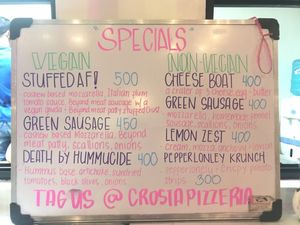 "SPECIALS"
VEGAN
STUFFED AF! 500
cashew based mozzarella, Italian plum
tomato sauce, Beyond meat sausage w/ a
vegan + Beyond meat patty + stuffed crust
GREEN SAUSAGE 450
cashew based Mozzarella, Beyond
meat patty, scallions, onions
DEATH BY HUMMUCIDE 400
Hummus base, artichoke, sundried
tomatoes, black olives, onions
NON-VEGAN
CHEESE BOAT 400
a crater of 3 cheese, egg + butter
GREEN SAUSAGE 400
mozzarella, homemade
sausage, scallions, onions
LEMON ZEST 400
cream, mozza, anchovy + lemon
PEPPERLONLEY KRUNCH
Pepperlonley + crispy potato
strips 300
TAG US @ CROSTAPIZZERIA